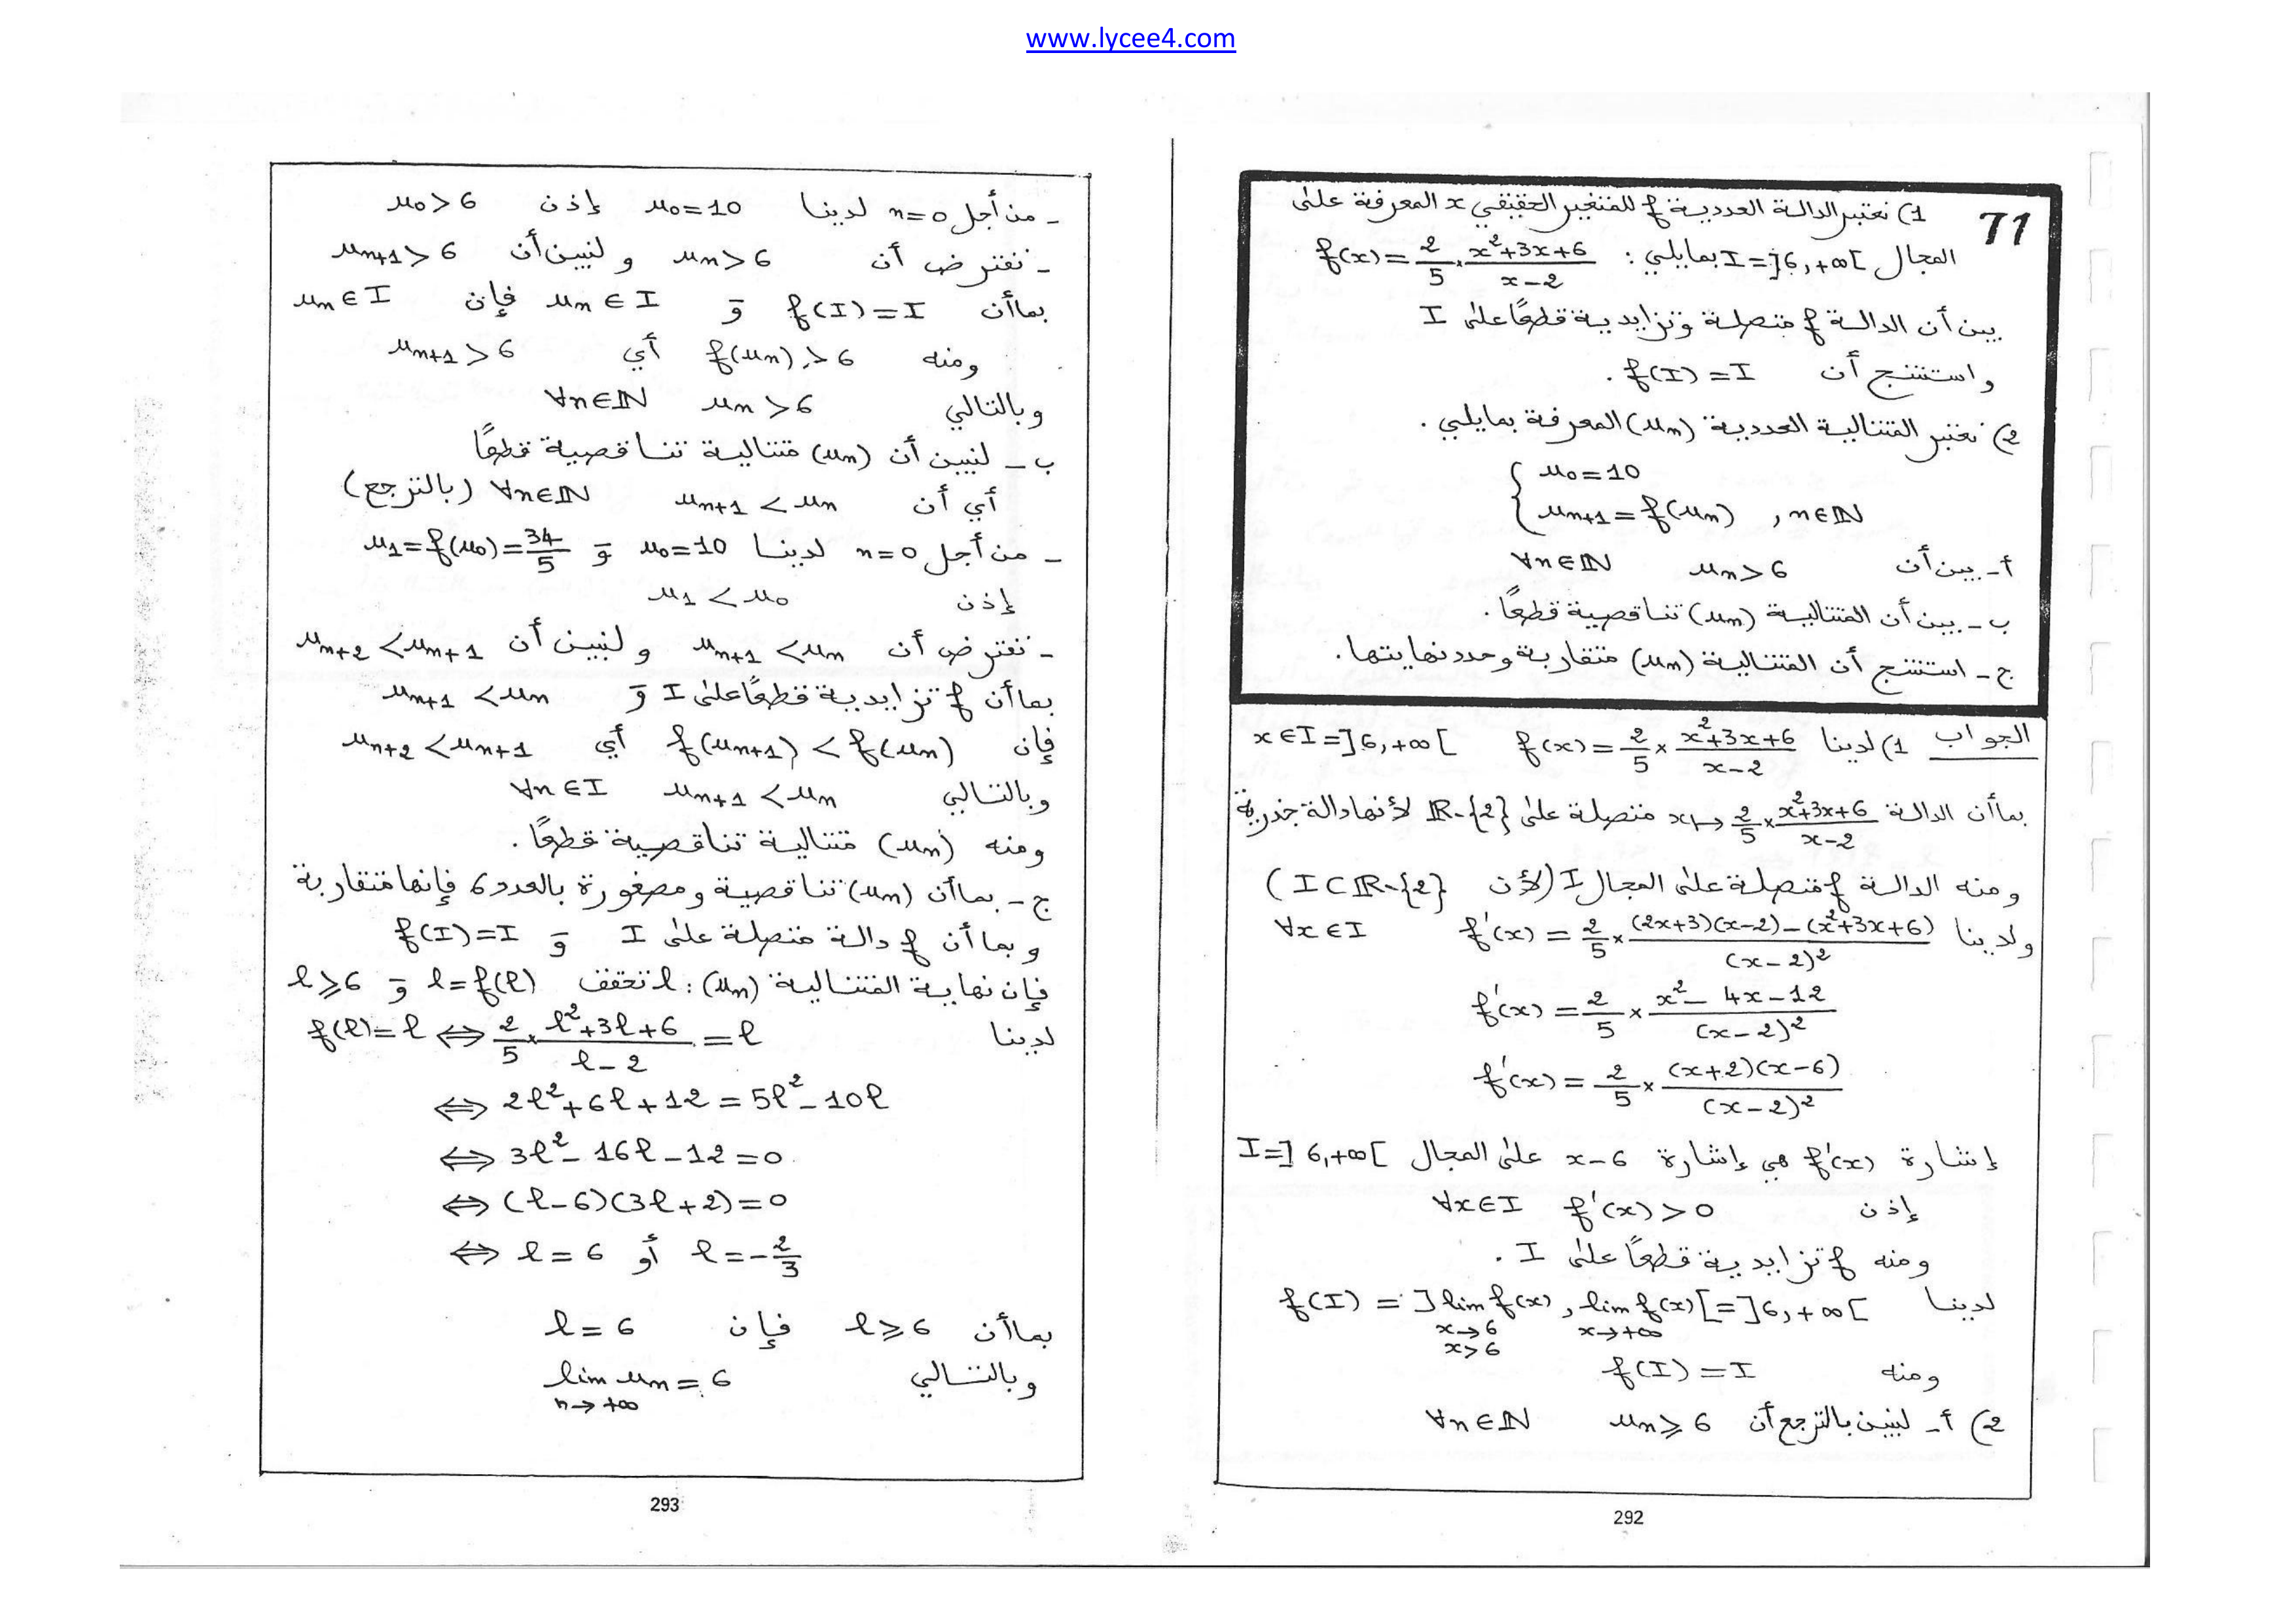 www.lycee4.com
71
1) نعتبر الدالة العددية f للمتغير الحقيقي x المعرفة على
المجال I=]6,+∞[ بمايلي : f(x)=2/5 × (x²+3x+6)/(x-2)
بين أن الدالة f متصلة وتزايدية قطعًا على I
واستنتج أن f(I)=I .
2) نعتبر المتتالية العددية (un) المعرفة بمايلي .
{ u0=10
{ un+1=f(un) , n∈ℕ
أ- بين أن un>6 ∀n∈ℕ
ب - بين أن المتتالية (un) تناقصية قطعًا.
ج - استنتج أن المتتالية (un) متقاربة وحدد نهايتها.
الجواب 1) لدينا f(x)=2/5 × (x²+3x+6)/(x-2) x∈I=]6,+∞[
بما أن الدالة x↦2/5 × (x²+3x+6)/(x-2) متصلة على ℝ-{2} لأنها دالة جذرية
ومنه الدالة f متصلة على المجال I (لأن I⊂ℝ-{2})
ولدينا f'(x)=2/5 × ((2x+3)(x-2)-(x²+3x+6))/(x-2)² ∀x∈I
f'(x)=2/5 × (x²-4x-12)/(x-2)²
f'(x)=2/5 × (x+2)(x-6)/(x-2)²
إشارة f'(x) هي إشارة x-6 على المجال I=]6,+∞[
إذن f'(x)>0 ∀x∈I
ومنه f تزايدية قطعًا على I .
لدينا f(I)=]lim f(x) , lim f(x)[=]6,+∞[
x→6 x→+∞
x>6
ومنه f(I)=I
2) أ- لنبين بالترجع أن un⩾6 ∀n∈ℕ
292
- من أجل n=0 لدينا u0=10 إذن u0>6
- نفترض أن un>6 ولنبين أن un+1>6
بما أن f(I)=I و un∈I فإن un∈I
ومنه f(un)>6 أي un+1>6
وبالتالي un>6 ∀n∈ℕ
ب - لنبين أن (un) متتالية تناقصية قطعًا
أي أن un+1<un ∀n∈ℕ (بالترجع)
- من أجل n=0 لدينا u0=10 و u1=f(u0)=34/5
إذن u1<u0
- نفترض أن un+1<un ولنبين أن un+2<un+1
بما أن f تزايدية قطعًا على I و un+1<un
فإن f(un+1)<f(un) أي un+2<un+1
وبالتالي un+1<un ∀n∈I
ومنه (un) متتالية تناقصية قطعًا.
ج - بما أن (un) تناقصية ومصغورة بالعدد 6 فإنها متقاربة
وبما أن f دالة متصلة على I و f(I)=I
فإن نهاية المتتالية (un) : l تحقق l=f(l) و l⩾6
لدينا f(l)=l ⇔ 2/5 × (l²+3l+6)/(l-2)=l
⇔ 2l²+6l+12=5l²-10l
⇔ 3l²-16l-12=0
⇔ (l-6)(3l+2)=0
⇔ l=6 أو l=-2/3
بما أن l⩾6 فإن l=6
وبالتالي lim un=6
n→+∞
293